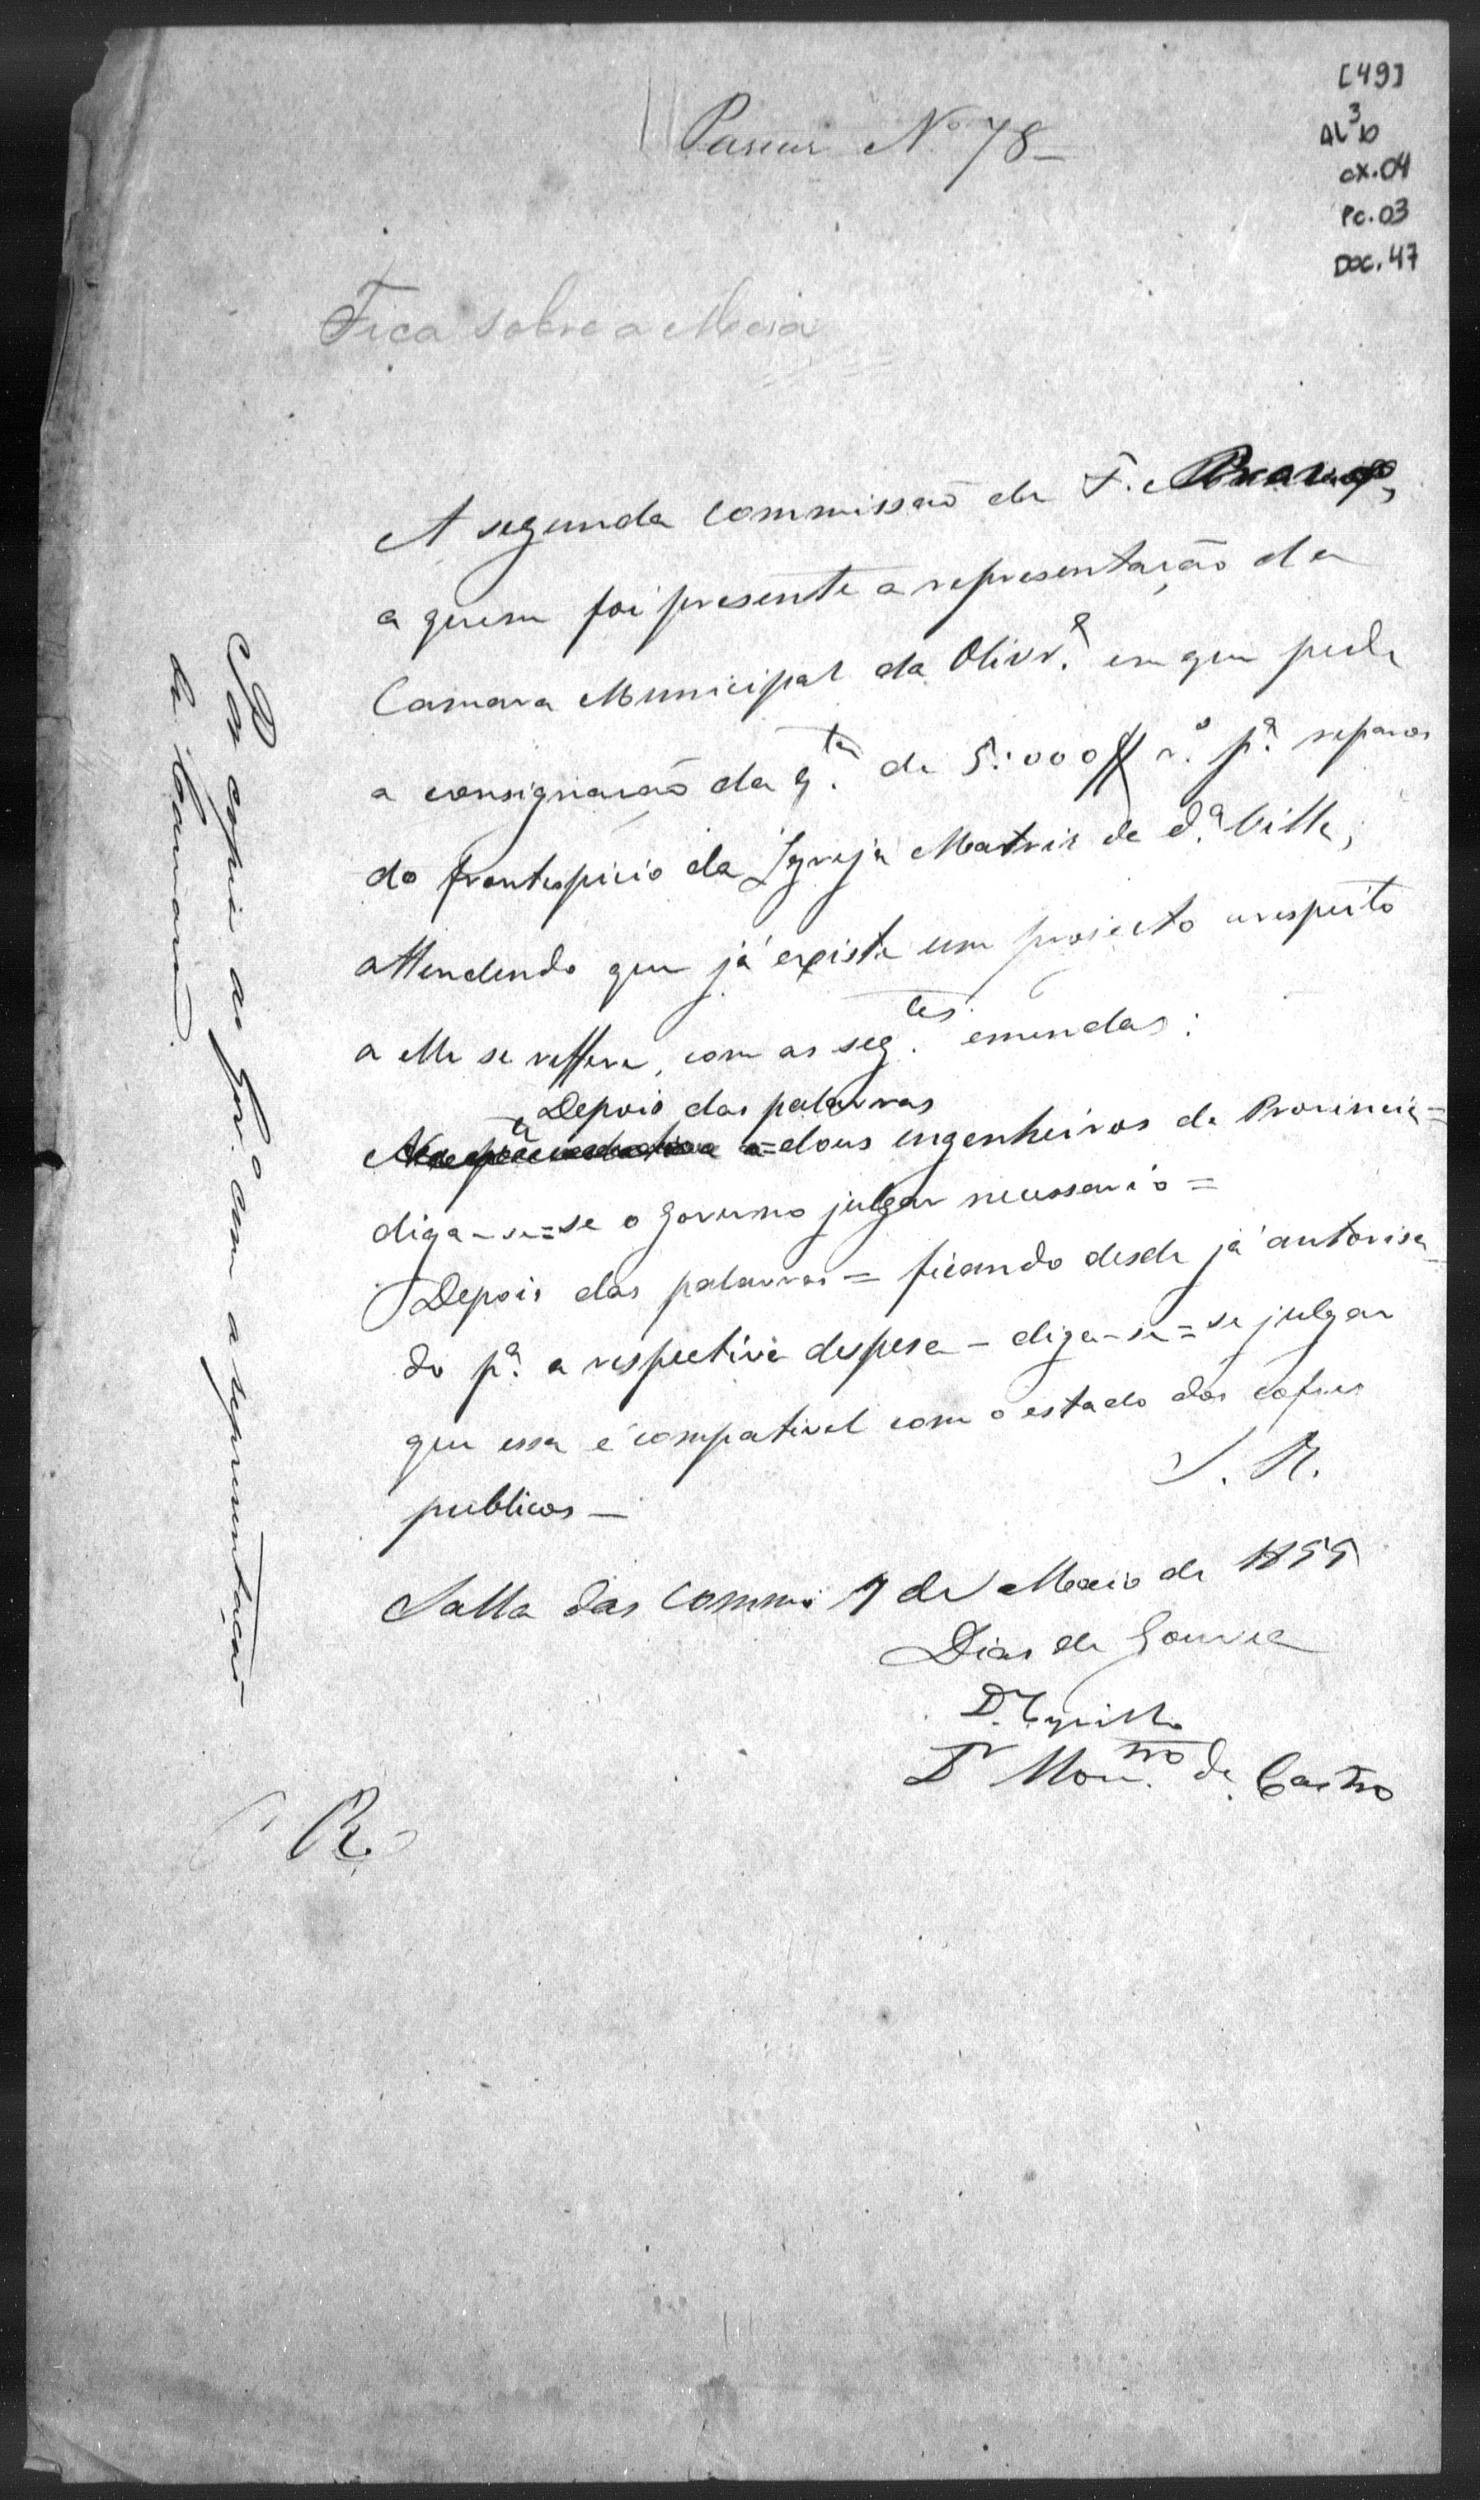 [49]
AL 3/10
cx. 04
Pc. 03
Doc. 47
Parecer Nº 78-
Fica sobre a Mesa
A segunda commissão de F.
a quem foi presente a representação da
Camara Municipal da Olivrª em que pede
a consignação da q.ta de 5:000$ r.s pª reparos
do frontespicio da Igreja Matris de dª Villa,
attendendo que já existe um projecto a respeito
a elle se reffere, com as seg.tes emendas:
Depois das palavras
= dous engenheiros da Provincia =
diga-se = se o Governo julgar necessario =
Depois das palavras = ficando desde já autorisa-
do pª a respectiva despesa - diga-se = se julgar
que essa é compativel com o estado dos cofres
publicos -
S. R.
Salla das Commi 7 de Maio de 1855
Dias de Gouvea
D. Cyrillo
Dr Mon.tro de Castro
R.
Por copia ao Gov.o com a representação
da Camara.